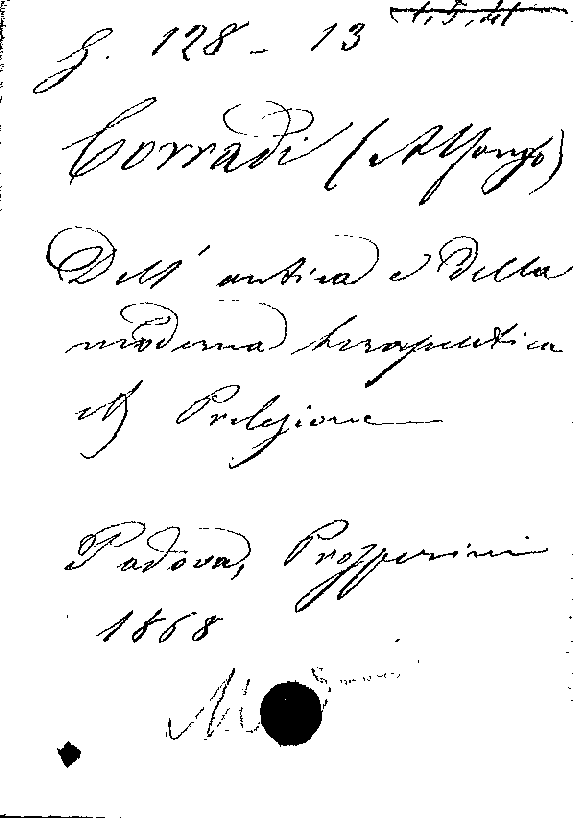 G. 128 - 13
Corradi (Alfonso)
Dell' antica e della
moderna terapeutica
Prelezione
Padova, Prosperini
1868